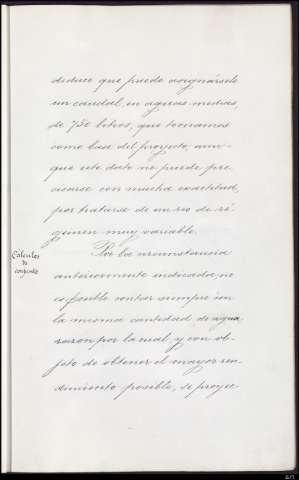 deduce que puede asignársele
un caudal, en aguas medias,
de 750 litros, que tomamos
como base del proyecto, aun-
que este dato no puede pre-
cisarse con mucha exactitud,
por tratarse de un rio de ré-
gimen muy variable.
Cálculos
de
conjunto
Por la circunstancia
anteriormente indicada, no
es posible contar siempre con
la misma cantidad de agua,
razon por la cual, y con ob-
jeto de obtener el mayor ren-
dimiento posible, se proyec-